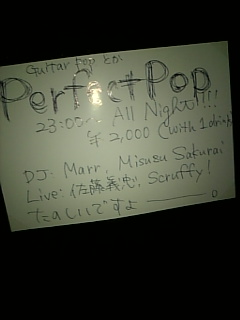 Guitar Pop とか
Perfect Pop
23:00~ All Night!!!
¥2,000 (with 1 drink)
DJ. Marr, Misuzu Sakurai
Live: 佐藤義忠, Scruffy!
たのしいですよ